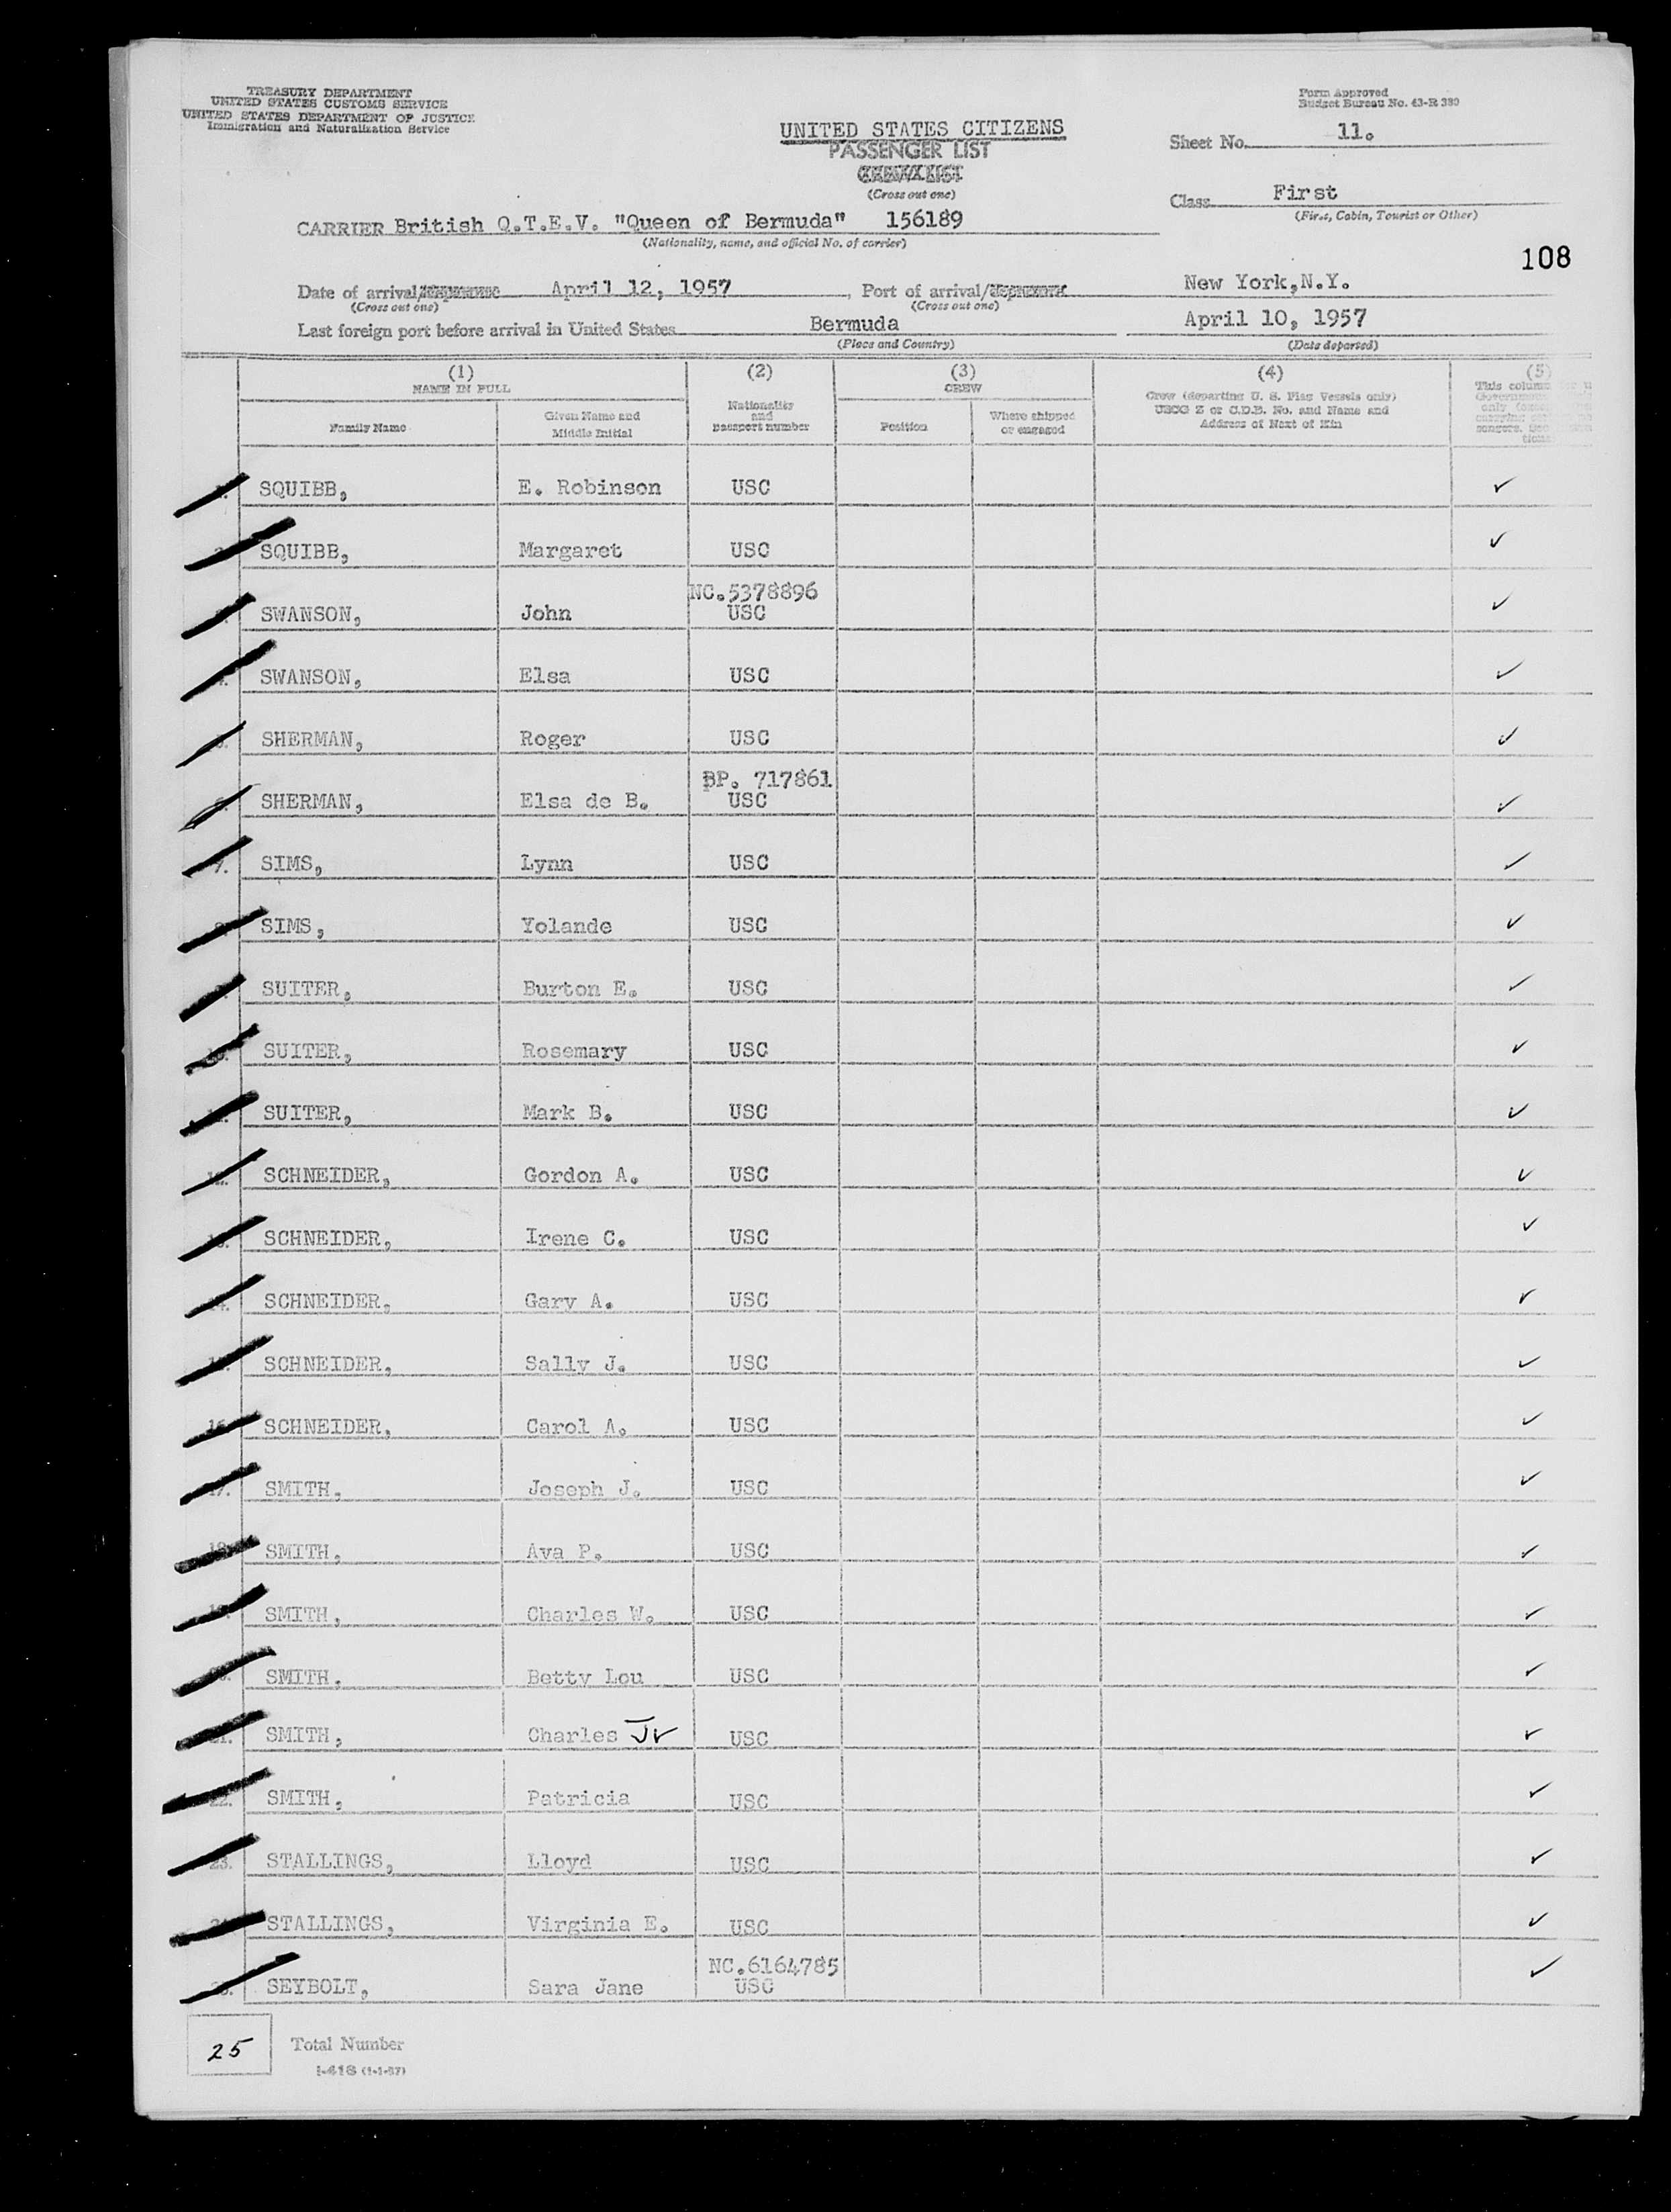 TREASURY DEPARTMENT
UNITED STATES CUSTOMS SERVICE
UNITED STATES DEPARTMENT OF JUSTICE
Immigration and Naturalization Service
Form Approved
Budget Bureau No. 43-R 380
UNITED STATES CITIZENS
PASSENGER LIST
CREW LIST
(Cross out one)
Sheet No. 11.
Class First
(First, Cabin, Tourist or Other)
CARRIER British Q.T.E.V. "Queen of Bermuda" 156189
(Nationality, name, and official No. of carrier)
108
Date of arrival/departure April 12, 1957, Port of arrival/departure New York,N.Y.
(Cross out one) (Cross out one)
Last foreign port before arrival in United States Bermuda April 10, 1957
(Place and Country) (Date departed)
(1) (2) (3) (4) (5)
NAME IN FULL Nationality and passport number CREW Crew (departing U. S. Flag Vessels only) USCG Z or C.D.B. No. and Name and Address of Next of Kin This column
Family Name Given Name and Middle Initial Position Where shipped or engaged
SQUIBB, E. Robinson USC ✓
SQUIBB, Margaret USC ✓
NC.5378896
SWANSON, John USC ✓
SWANSON, Elsa USC ✓
SHERMAN, Roger USC ✓
BP. 717861
SHERMAN, Elsa de B. USC ✓
7. SIMS, Lynn USC ✓
SIMS, Yolande USC ✓
SUITER, Burton E. USC ✓
SUITER, Rosemary USC ✓
SUITER, Mark B. USC ✓
SCHNEIDER, Gordon A. USC ✓
SCHNEIDER, Irene C. USC ✓
SCHNEIDER, Gary A. USC ✓
SCHNEIDER, Sally J. USC ✓
16. SCHNEIDER, Carol A. USC ✓
17. SMITH, Joseph J. USC ✓
SMITH, Ava P. USC ✓
SMITH, Charles W. USC ✓
SMITH, Betty Lou USC ✓
21. SMITH, Charles Jr USC ✓
22. SMITH, Patricia USC ✓
23. STALLINGS, Lloyd USC ✓
STALLINGS, Virginia E. USC ✓
NC.6164785
SEYBOLT, Sara Jane USC ✓
25 Total Number
I-418 (1-1-57)